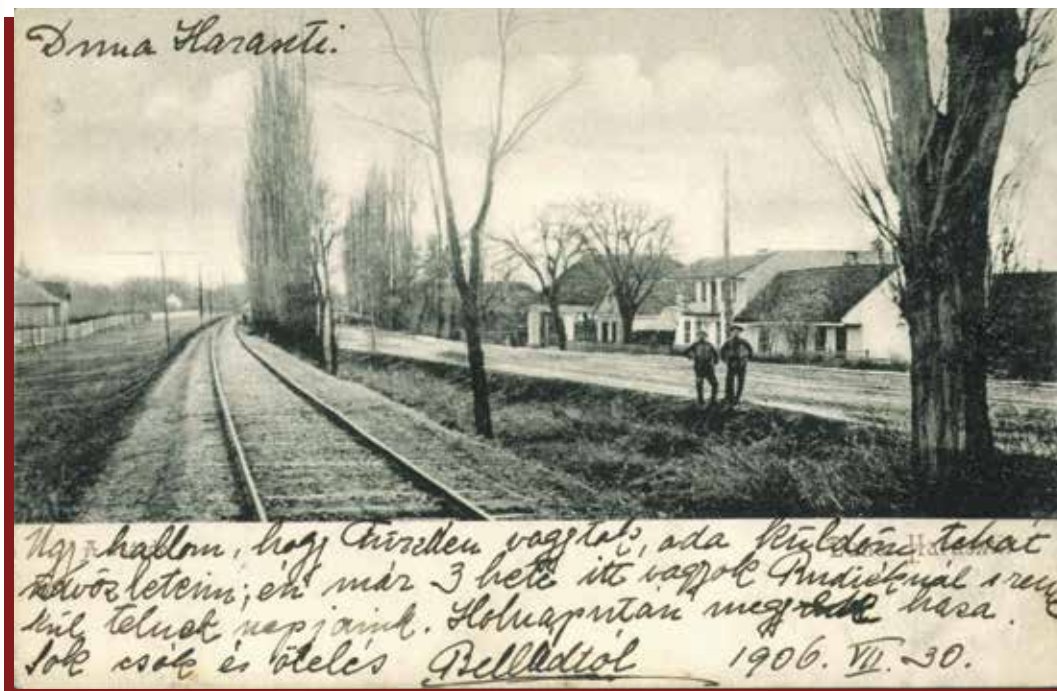 Duna Haraszti.
Ugy hallom, hogy Füreden vagytok, oda küldöm tehát
üdvözleteim; én már 3 hete itt vagyok Rudiéknál s remekül
telnek napjaink. Holnapután megyek haza.
Sok csók és ölelés Belládtól 1906. VII. 30.